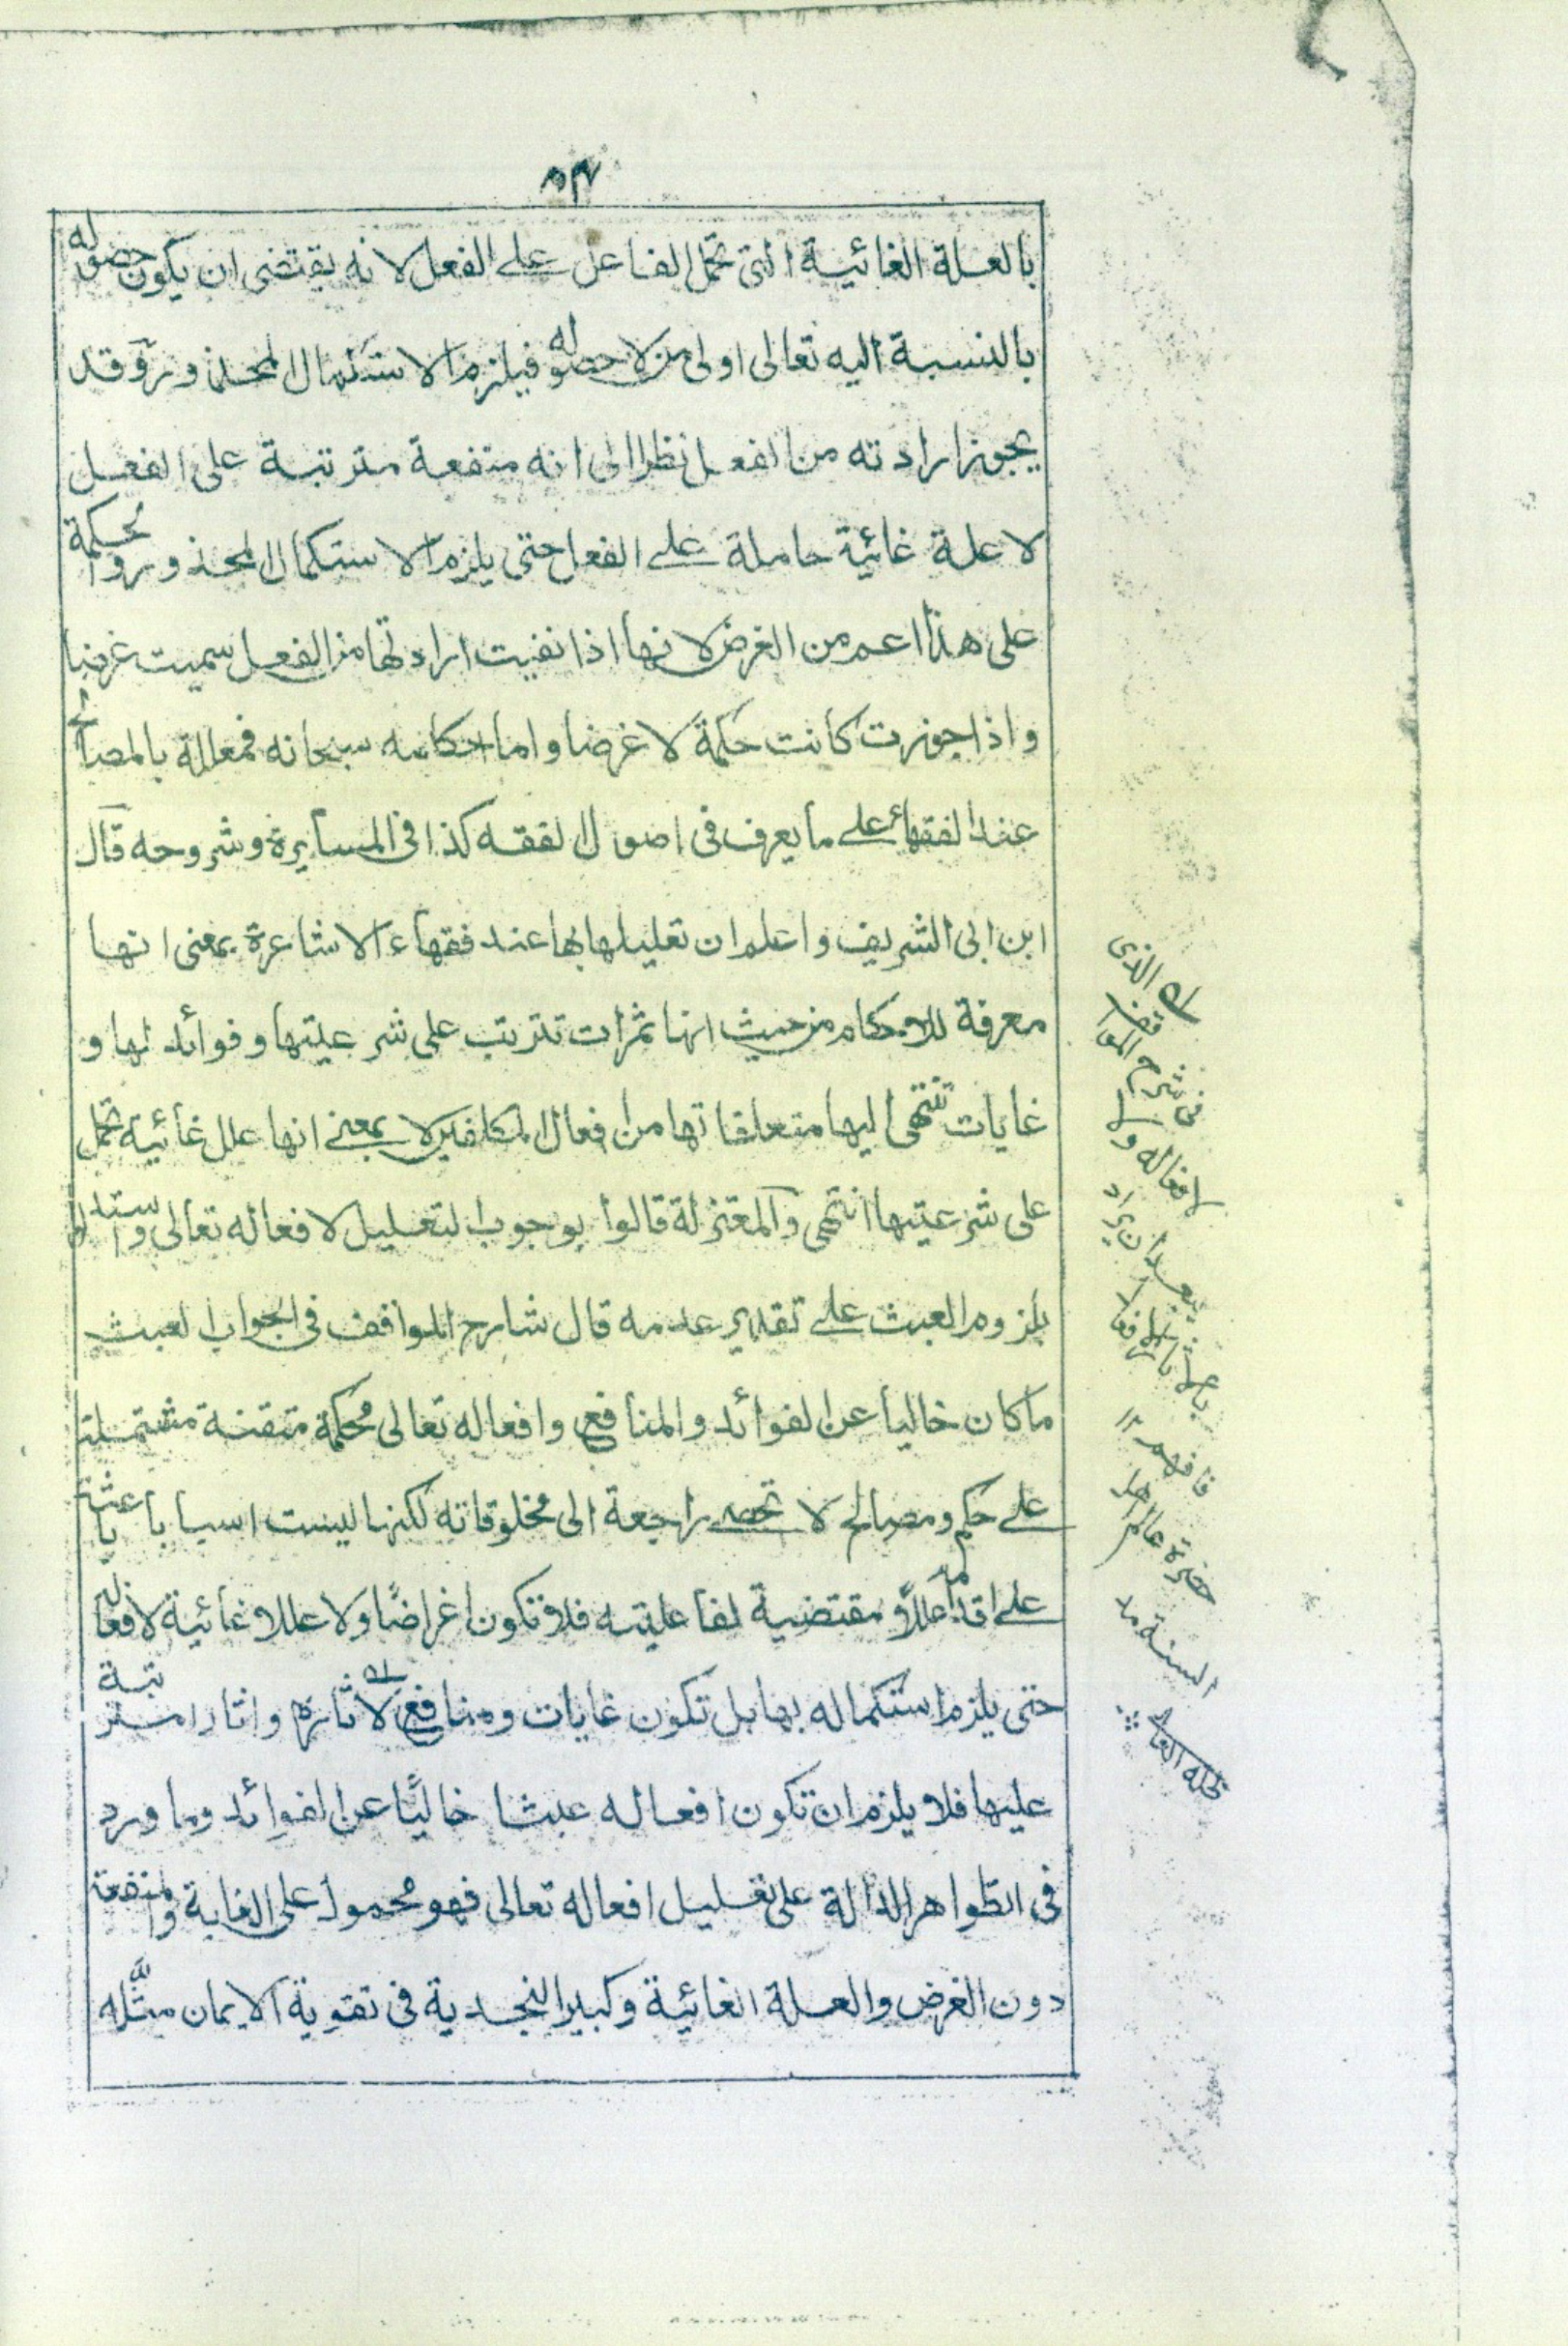 بالعلة الغائية التى تحمل الفاعل على الفعل لانه يقتضى ان يكون حصوله
بالنسبة اليه تعالى اولى من لا حصوله فيلزم الاستكمال المحذور وقد
يجوز ارادته من الفعل نظرا الى انه منفعة مترتبة على الفعل
لا علة غائية حاملة على الفعل حتى يلزم الاستكمال المحذور والحكمة
على هذا اعم من الغرض لانها اذا نفيت ارادتها من الفعل سميت غرضا
واذا جوزت كانت حكمة لا غرضا واما احكامه سبحانه فمعللة بالمصالح
عند الفقهاء على ما يعرف فى اصول الفقه كذا فى المسايرة وشروحه قال
ابن ابى الشريف واعلم ان تعليلها بها عند فقهاء الاشاعرة بمعنى انها
معرفة للاحكام من حيث انها ثمرات تترتب على شرعيتها وفوائد لها و
غايات تنتهى اليها متعلقاتها من افعال المكلفين لا بمعنى انها علل غائية تحمل
على شرعيتها انتهى والمعتزلة قالوا بوجوب التعليل لافعاله تعالى واستدلوا
بلزوم العبث على تقدير عدمه قال شارح المواقف فى الجواب العبث
ما كان خاليا عن الفوائد والمنافع وافعاله تعالى محكمة متقنة مشتملة
على حكم ومصالح لا تحصى راجعة الى مخلوقاته لكنها ليست اسبابا باعثة
على اقدامه وعللا مقتضية لفاعليته فلا تكون اغراضا ولا عللا غائية لافعاله
حتى يلزم استكماله بها بل تكون غايات ومنافع لاثاره واثارا مترتبة
عليها فلا يلزم ان تكون افعاله عبثا خاليا عن الفوائد وما ورد
فى الظواهر الدالة على تعليل افعاله تعالى فهو محمول على الغاية والمنفعة
دون الغرض والعلة الغائية وكبير النجدية فى تقوية الايمان مثله
الذى
فى شرح المواقف
لافعاله و
فافهم ١٢
حضرة عالم اهل
السنة مد
ظله العالى